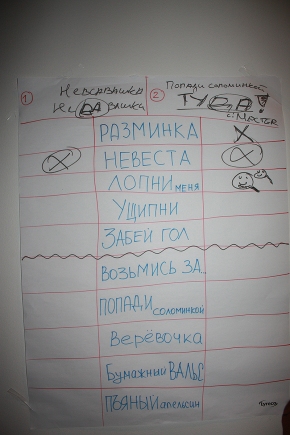 1
Невоавышка
Ни ДА вышки
2
Попади соломинкой
ТУДА!
с! MASTER
РАЗМИНКА
X
X
НЕВЕСТА
X
ЛОПНИ МЕНЯ
УЩИПНИ
ЗАБЕЙ ГОЛ
ВОЗЬМИСЬ ЗА..
ПОПАДИ СОЛОМИНКОЙ
Верёвочка
Бумажный ВАЛЬС
ПЬЯНЫЙ апельсин